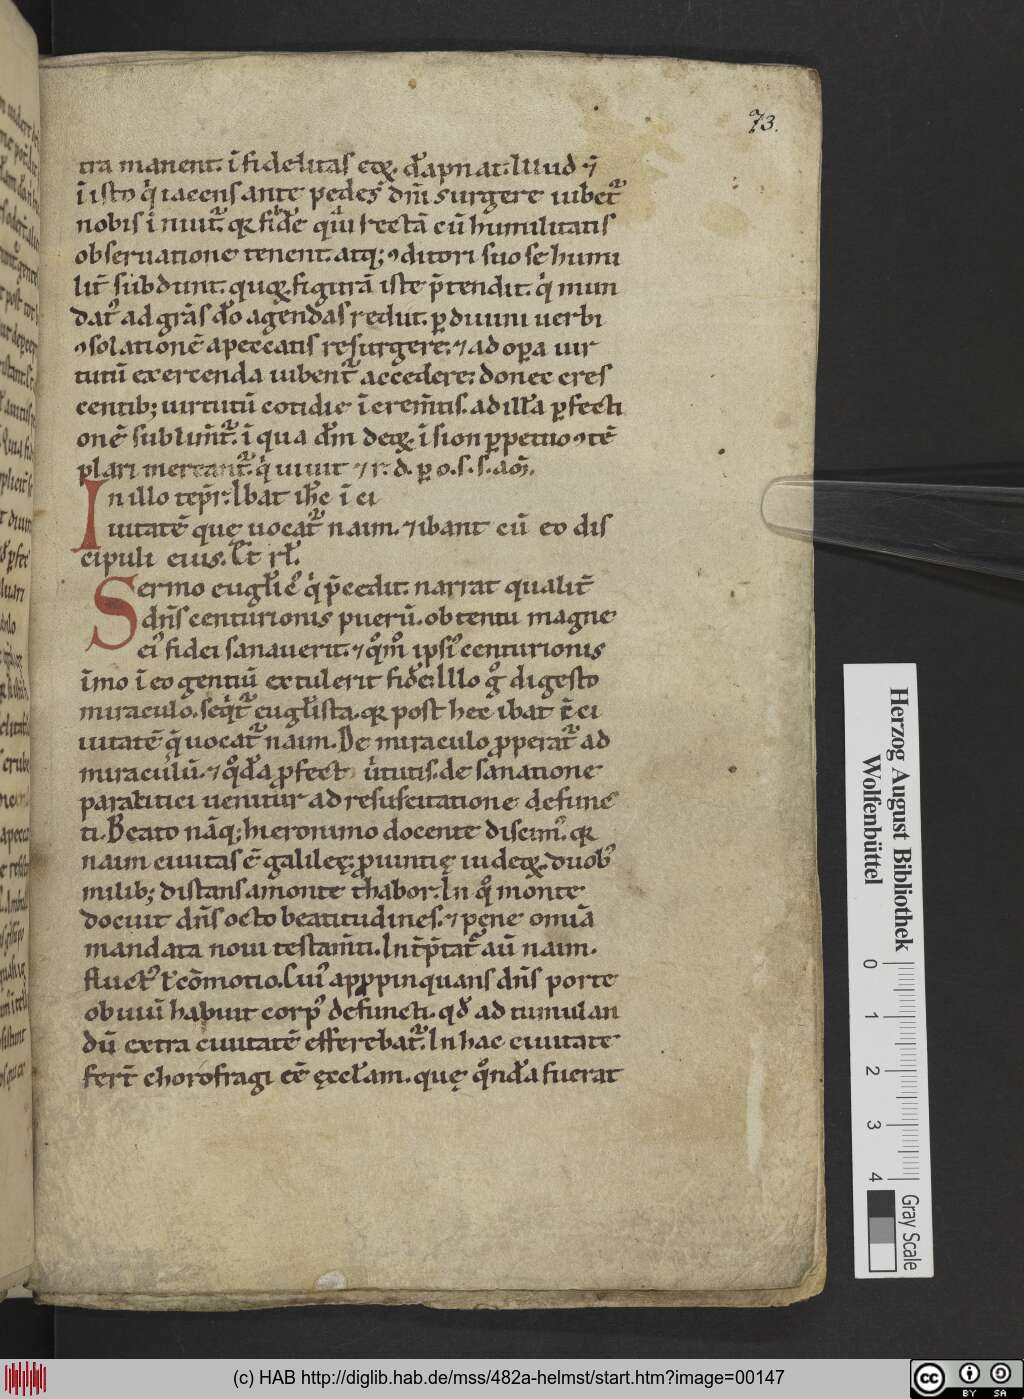 73.
tra manent. ī fidelitas eoꝝ. dāpnat. Illud ⁊ ī
ī isto q̇ iacens ante pedes dn̄i surgere iubet᷑
nobis īnuit᷑. qꝛ fidē qui rectā cū humilitatis
obseruatione tenent. atq; ꝯditori suo se humi
lit̄ subdunt. quoꝝ figurā iste p̄tendit. q̇ mun
dat᷒ ad grā s dō agendas redut. ꝑ diuini uerbi
ꝯsolationē a peccatis resurgere. ⁊ ad oꝑa uir
tutū exercenda iubent᷑ accedere: donec cres
centib; uirtutū cotidie īcrem̄tis. ad illā ꝑfecti
onē sublim̄t᷑. ī qua dm̄ deoꝝ. ī sion ꝑpetuo ꝯtē
plari mereant᷑. q̇ uiuit ⁊ r. d. ꝑ o. s. s. am̄.
In illo tēpr̄. Ibat ih̄c ī ci
uitatē quę uocat᷑ naim. ⁊ ibant cū eo dis
cipuli eius. Et rł.
Sermo eugl̄ic᷒ q̇ p̄cedit. narrat qualit̄
dn̄s centurionis puerū. obtentu magne
ei᷒ fidei sanauerit. ⁊ qm̊ ipsi᷒ centurionis
īmo ī eo gentiū extulerit fidē. Illo g̊ digesto
miraculo. seqit᷑ eugl̄ista. qꝛ post hec ibat ē ci
uitatē q̄ uocat᷑ naim. De miraculo ꝓperat᷑ ad
miraculū. ⁊ qd̊ā ꝓfect u̇tutis. de sanatione
paralitici uenitur ad resuscitatione defunc
ti. Beato nāq; hieronimo docente discim᷒. qꝛ
naim ciuitas ē galileę; ꝓuintię iudeoꝝ. duob᷒
milib; distans a monte thabor. In qo̊ monte
docuit dn̄s octo beatitudines. ⁊ pene omīa
mandata noui testam̄ti. Int̄p̄tat᷑ aū naim.
fluct᷒ ł cōmotio. Cui᷒ appropinquans dn̄s porte
obuiū habuit corp᷒ defuncti. qd̄ ad tumulan
dū extra ciuitatē efferebat᷑. In hac ciuitate
fert̄ chorofragi eē ęccłam. quę qo̊ndā fuerat
Herzog August Bibliothek
Wolfenbüttel
0 1 2 3 4
Gray Scale
(c) HAB http://diglib.hab.de/mss/482a-helmst/start.htm?image=00147
cc BY SA